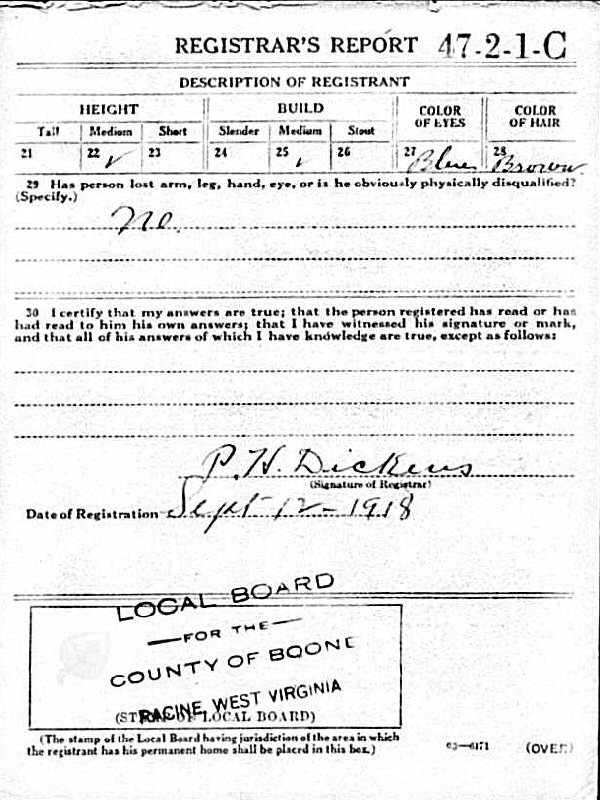 REGISTRAR'S REPORT 47-2-1-C
DESCRIPTION OF REGISTRANT
HEIGHT BUILD COLOR OF EYES COLOR OF HAIR
Tall Medium Short Slender Medium Stout
21 22 ✓ 23 24 25 ✓ 26 27 Blue 28 Brown
29 Has person lost arm, leg, hand, eye, or is he obviously physically disqualified?
(Specify.)
No.
30 I certify that my answers are true; that the person registered has read or has
had read to him his own answers; that I have witnessed his signature or mark,
and that all of his answers of which I have knowledge are true, except as follows:
P. H. Dickens
(Signature of Registrar)
Date of Registration Sept-12-1918
LOCAL BOARD
—FOR THE—
COUNTY OF BOONE
RACINE, WEST VIRGINIA
(STAMP OF LOCAL BOARD)
(The stamp of the Local Board having jurisdiction of the area in which
the registrant has his permanent home shall be placed in this box.)
03—6171 (OVER)